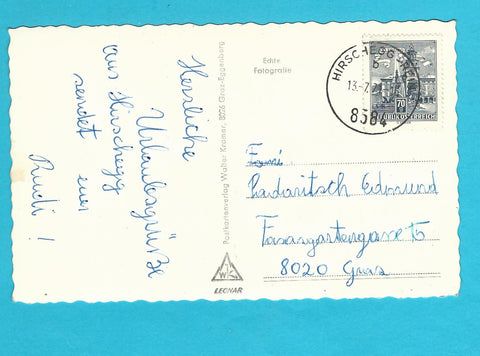 Herzliche
Urlaubsgrüße
aus Hirschegg
sendet euer
Rudi!
Postkartenverlag Walter Kramer, 8026 Graz-Eggenberg
Echte
Fotografie
LEONAR
HIRSCHEGG
13.-7.
8584
70
REPUBLIK ÖSTERREICH
Fam.
Edmund
Fasangartengasse
8020 Graz